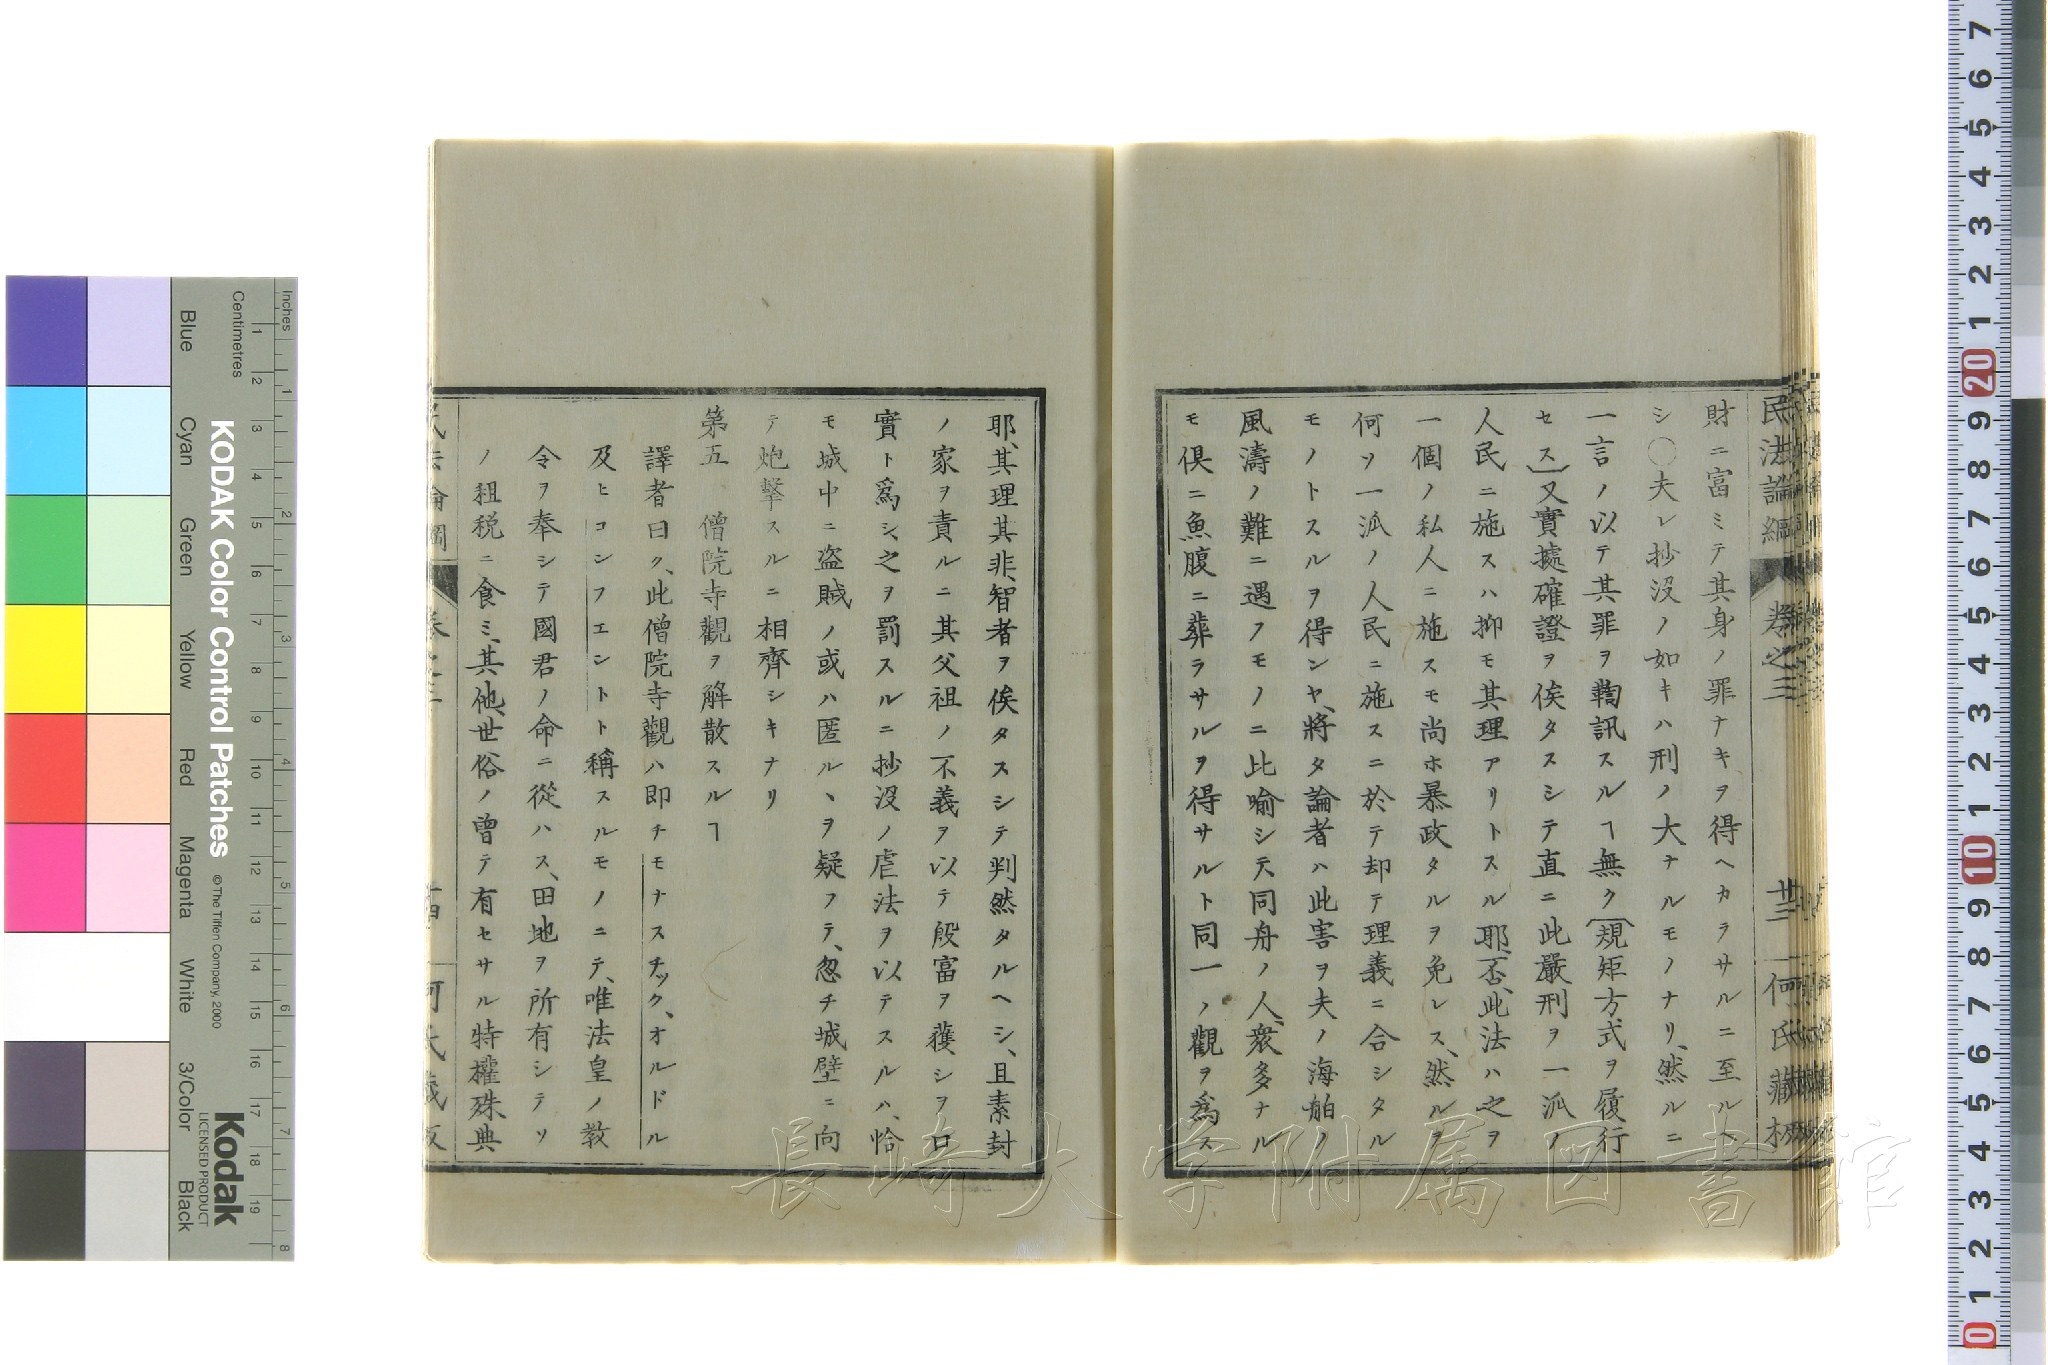 民法論綱 卷之三 廿三 何氏藏板
財ニ富ミテ其身ノ罪ナキヲ得ヘカラサルニ至ルヘ
シ○夫レ抄沒ノ如キハ刑ノ大ナルモノナリ、然ルニ
一言ノ以テ其罪ヲ鞫訊スルヿ無ク(規矩方式ヲ履行
セス)又實據確證ヲ俟タスシテ直ニ此嚴刑ヲ一派ノ
人民ニ施スハ抑モ其理アリトスル耶、否、此法ハ之ヲ
一個ノ私人ニ施スモ尚ホ暴政タルヲ免レス、然ルヲ
何ソ一派ノ人民ニ施スニ於テ却テ理義ニ合シタル
モノトスルヲ得ンヤ、將タ論者ハ此害ヲ夫ノ海舶ノ
風濤ノ難ニ遇フモノニ比喻シテ同舟ノ人、衆多ナル
モ俱ニ魚腹ニ葬ラサルヲ得サルト同一ノ觀ヲ爲ス
耶、其理其非、智者ヲ俟タスシテ判然タルヘシ、且素封
ノ家ヲ責ルニ其父祖ノ不義ヲ以テ殷富ヲ獲シヲロ
實ト爲シ、之ヲ罰スルニ抄沒ノ虐法ヲ以テスルハ、恰
モ城中ニ盗賊ノ或ハ匿ルヽヲ疑フテ、忽チ城壁ニ向
テ炮擊スルニ相齊シキナリ
第五 僧院寺觀ヲ解散スルヿ
譯者曰ク、此僧院寺觀ハ即チモナスチック、オルドル
及ヒコンフエントト稱スルモノニテ、唯法皇ノ教
令ヲ奉シテ國君ノ命ニ從ハス、田地ヲ所有シテソ
ノ租税ニ食ミ、其他、世俗ノ曾テ有セサル特權殊典
民法論綱 卷之三 廿四 何氏藏板
長崎大学附属図書館
KODAK Color Control Patches
© The Tiffen Company, 2000
Kodak
LICENSED PRODUCT
Inches
Centimetres
Blue
Cyan
Green
Yellow
Red
Magenta
White
3/Color
Black